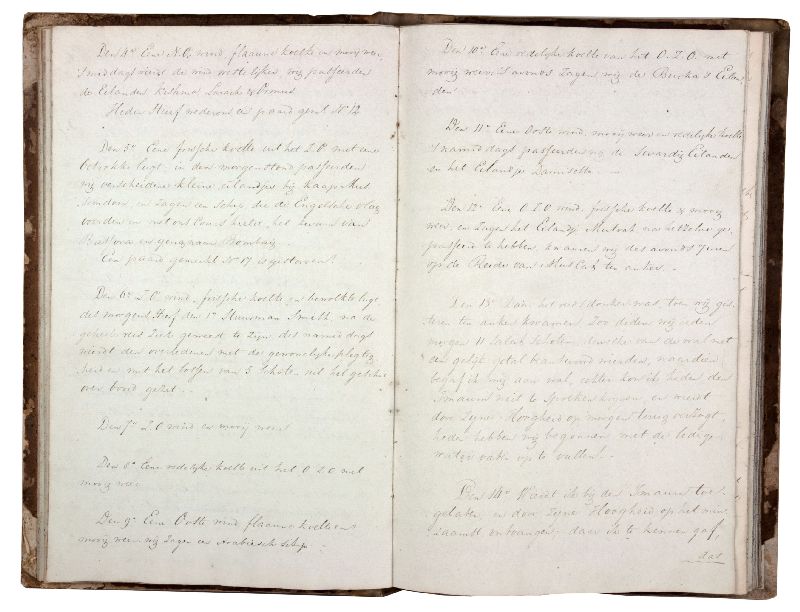 Den 4n Eene N.O. wind, flaauwe koelte en mooij weer,
's middags wierd de wind westelijker, wij passeerden
de Eilanden Kishma Larack & Ormus
Heden Stierf wederom een paard gem. N 12
Den 5n Eene frissche koelte uit het Z.O. met eene
betrokke lugt, in den morgenstond passeerden
wij verscheidene kleine eilandjes bij Kaap Mus
sendom, en zagen een Schip, die de Engelsche vlag
voerden en met ons Cours hield, het kwam van
Basora en ging naar Bombaij
Een paard gemerkt N 17 is gestorven
Den 6n Z.O. wind, frissche koelte en bewolkte lugt,
des morgens Stierf den 1n Stuurman Smith, na de
geheele reis Ziek geweest te zijn, des namiddags
wierdt den overledenen met de gewoonelijke plegtig
heid en met het lossen van 3 Schoten uit het geschut
over boord gezet.
Den 7n Z.O. wind en mooij weer
Den 8n Eene redelijke koelte uit het O.Z.O. met
mooij weer
Den 9n Eene Ooste wind flaauwe koelte en
mooij weer, wij zagen een arabiesch Schip
Den 10n Een redelijke koelte van het O.Z.O. met
mooij weer, 's avonds zagen wij de Burka's Eilan
den
Den 11n Eene Ooste wind, mooij weer en redelijke koelte
's namiddags passeerden wij de Swardij Eilanden
en het Eilandje
Den 12n Eene O.Z.O. wind, frissche koelte & mooij
weer, en na het Eilandje Mutrah ge
passeerd te hebben, kwamen wij des avonds 7 uren
op de Reede van Muscat ten anker.
Den 13n Daar het reets donker was, toen wij gis
teren ten anker kwamen, Zoo deden wij deden
morgen 11 Saluit Schoten, dewelke van de wal met
een gelijk getal beantwoord wierden, naar dien
begaf ik mij aan wal, echter kon ik heden den
Imaum niet te Spreken krijgen, en wierdt
door Zijne Hoogheid op morgen terug verzogt,
heden hebben wij begonnen met de ledige
water vaten op te vullen.
Den 14n Wierdt ik bij den Imaum toe
gelaten, en door Zijne Hoogheid op het minn
zaamst ontvangen, daar ik te kennen gaf,
dat